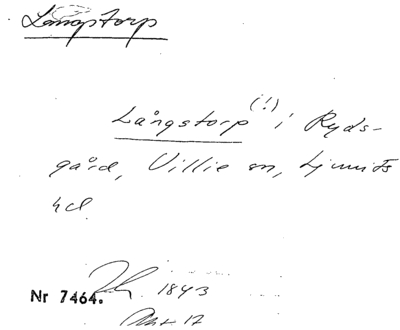 Långstorp
Långstorp (!) i Ryds-
gård, Villie sn, Ljunits
hd
1843
Nr 7464.
17